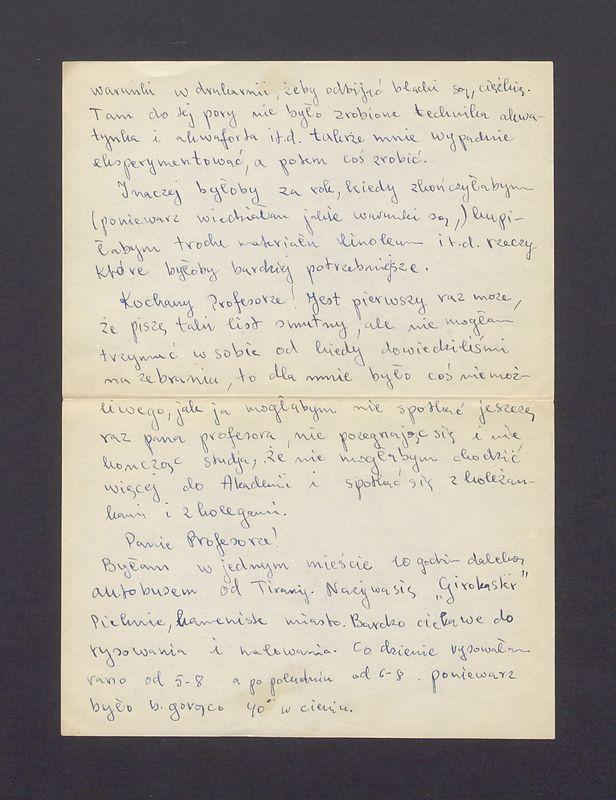 warunki w drukarnii, żeby odbijić blachi są, ciężkie.
Tam do tej pory nie było zrobione technika akwa-
tynka i akwaforta it.d. także mnie wypadnie
eksperymentować, a potem coś zrobić.
Inaczej byłoby za rok, kiedy zkończyłabym
(poniewarz wiedziałam jakie warunki są,) kupi-
łabym trochu materiału linoleum i t.d. rzeczy
które byłoby bardziej potrzebniejsze.
Kochany Profesorze! Jest pierwszy raz może,
że piszę taki list smutny, ale nie mogłam
trzymać w sobie od kiedy dowiedziliśmi
na zebraniu, to dla mnie było coś niemoż-
liwego, jak ja mogłabym nie spotkać jeszczę
raz pana profesora, nie pożegnając się i nie
kończąc studja, że nie mogłabym chodzić
więcej do Akademii i spotkać się z koleżan-
kami i z kolegami.
Panie Profesorze!
Byłam w jednym mieście 10 godzin daleko,
autobusem od Tirany. Nazywa się „Girokastër"
Pieknie, kamieniste miasto. Bardzo ciekawe do
rysowania i malowania. Co dzienie rysowałam
rano od 5-8 a po południu od 6-8. poniewarz
było b. gorąco 40° w cieniu.